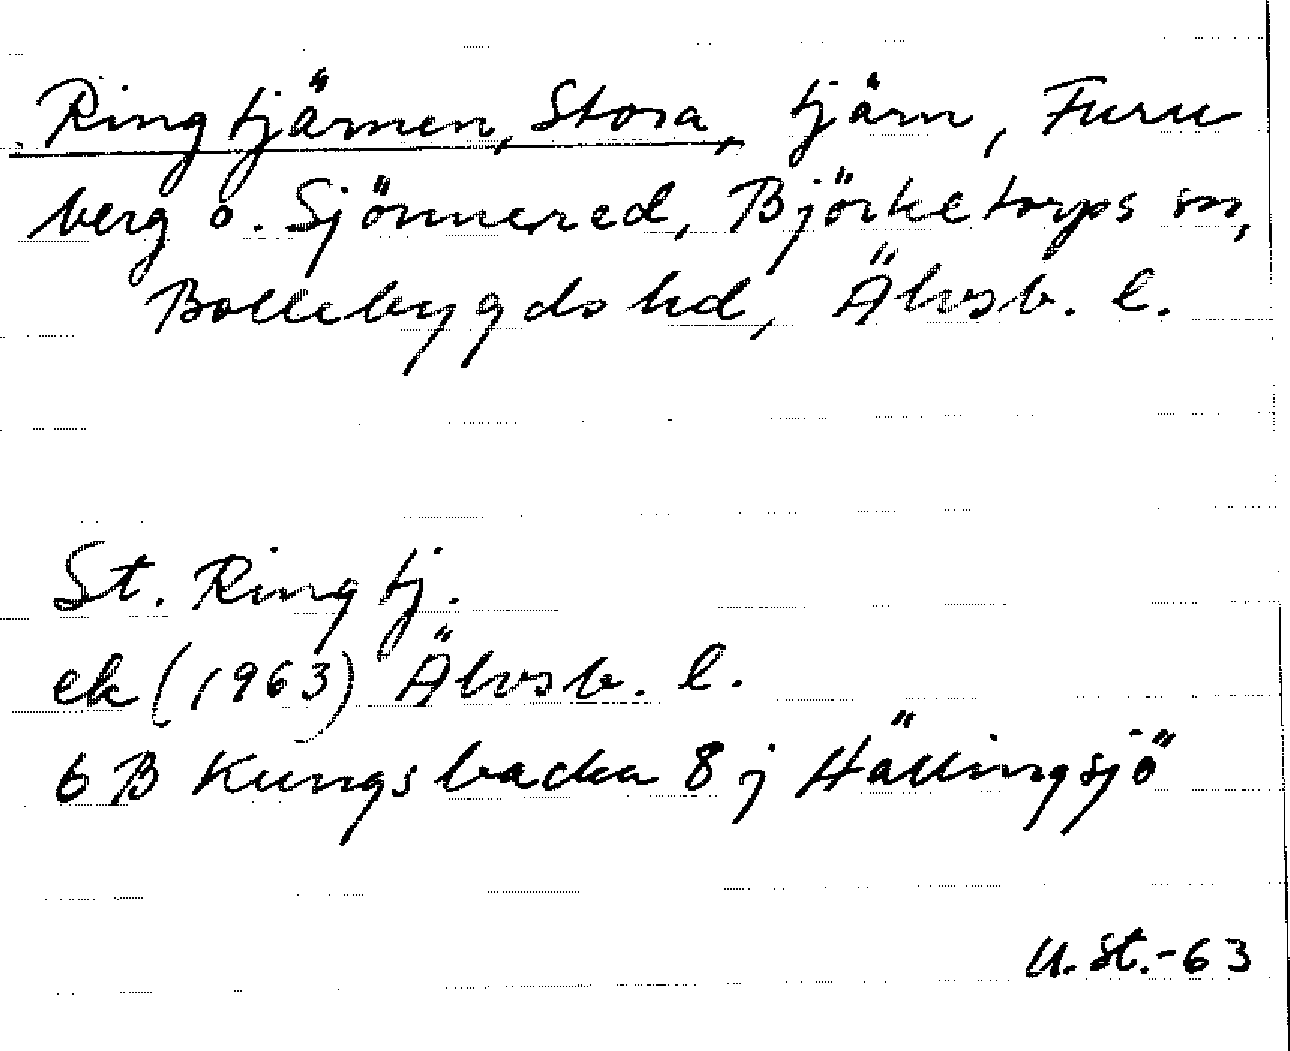 Ringtjärnen, Stora, tjärn, Furu
berg o. Sjönnered, Björketorps sn,
Bollebygds hd, Älvsb. l.
St. Ringtj.
ek (1963) Älvsb. l.
6 B Kungsbacka 8 j Hällingsjö
U. St. -63